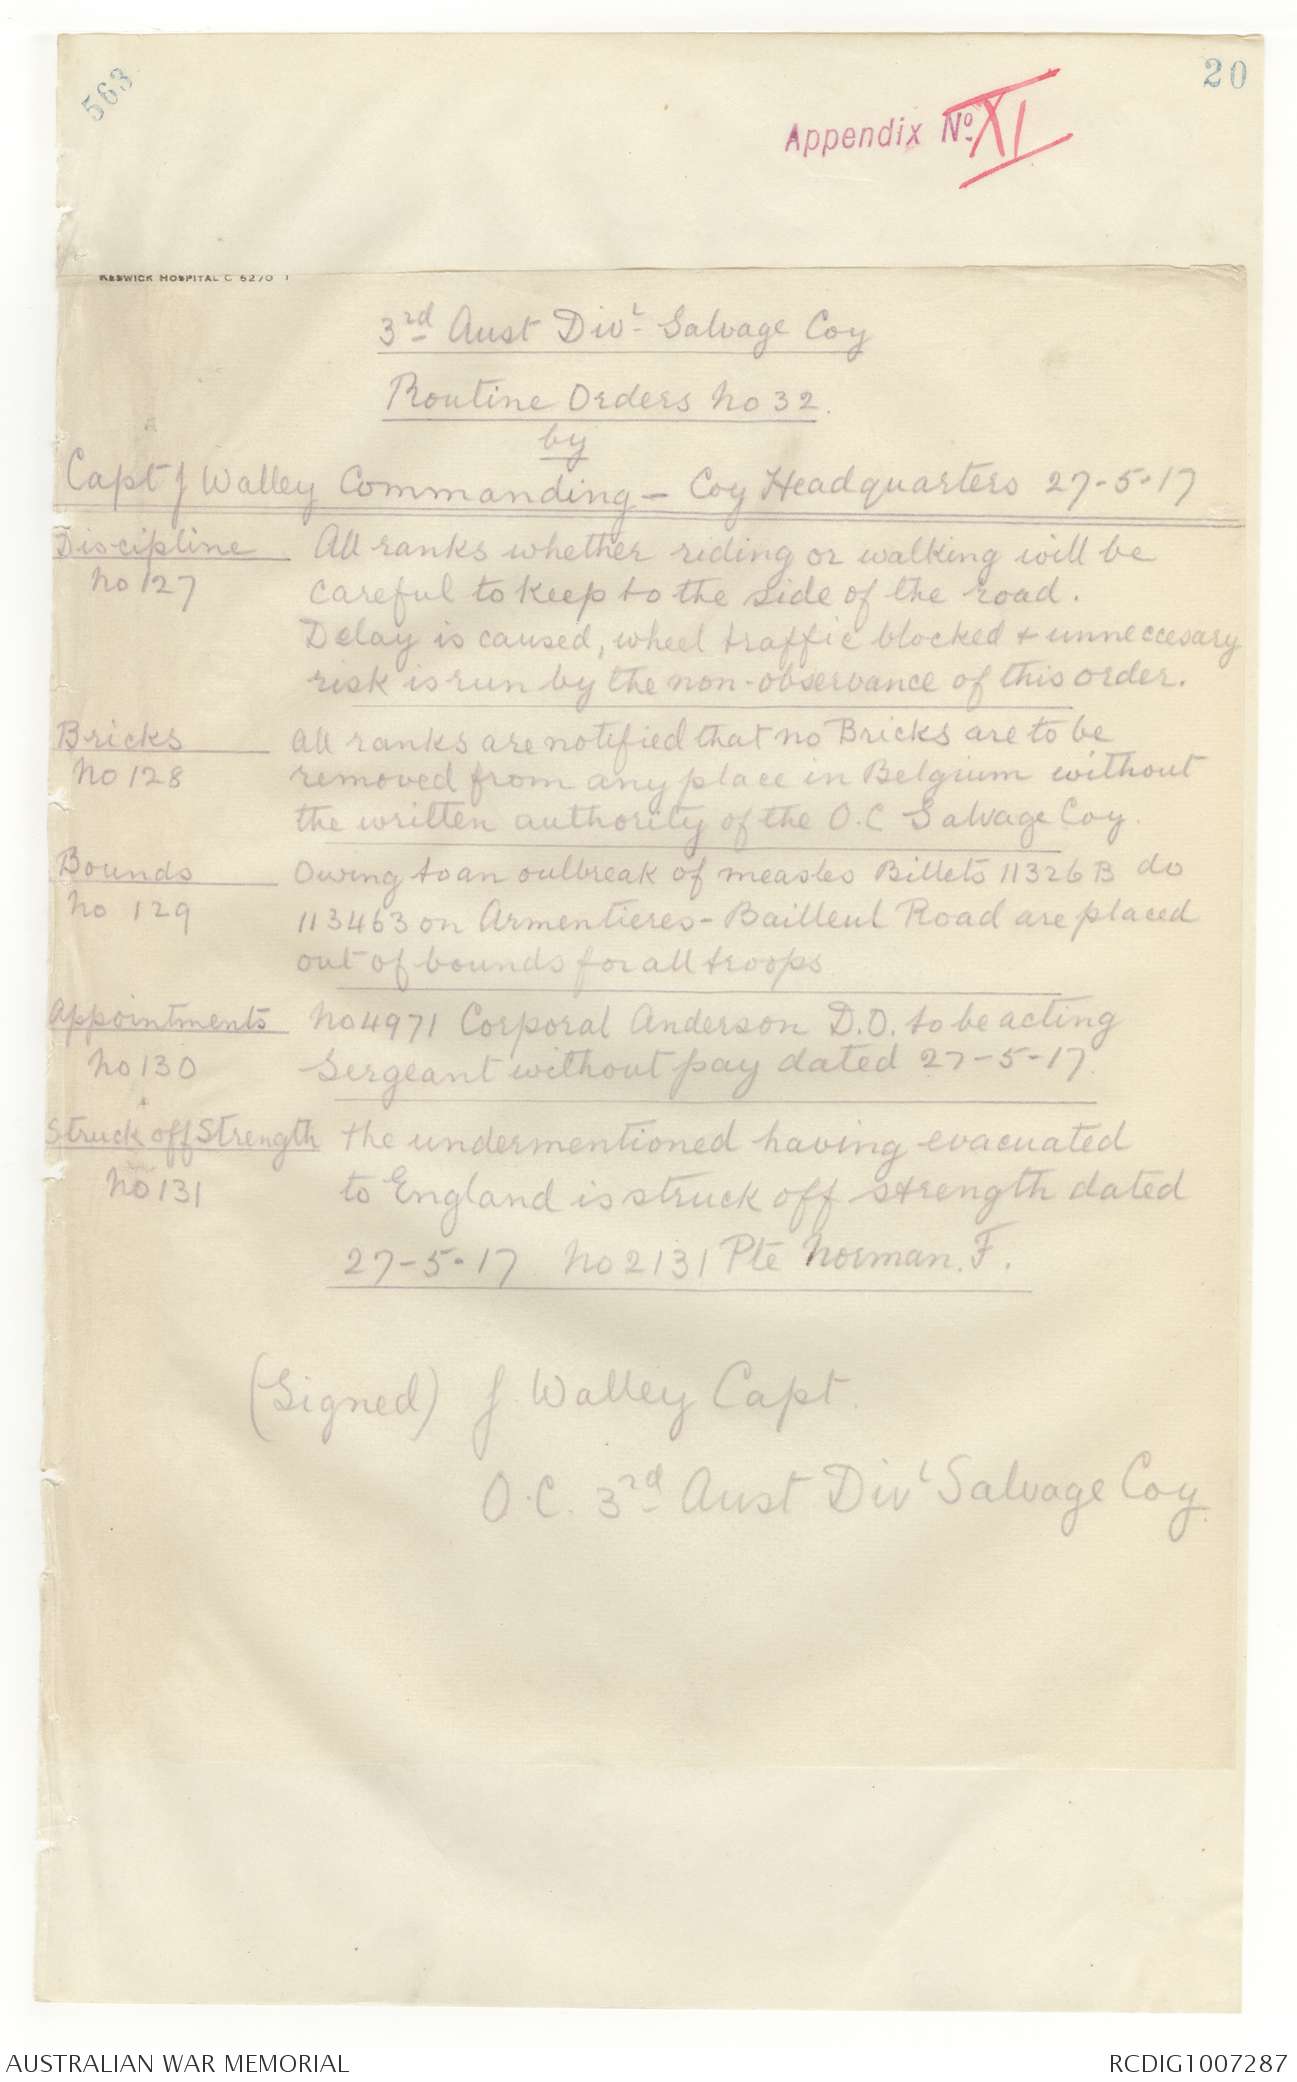 563
20
Appendix No. XI
KESWICK HOSPITAL C 5270
3rd Aust Divl Salvage Coy
Routine Orders No 32.
by
Capt J Walley Commanding - Coy Headquarters 27-5-17
Discipline All ranks whether riding or walking will be
No 127 careful to keep to the side of the road.
Delay is caused, wheel traffic blocked & unneccesary
risk is run by the non-observance of this order.
Bricks All ranks are notified that no Bricks are to be
No 128 removed from any place in Belgium without
the written authority of the O.C Salvage Coy.
Bounds Owing to an outbreak of measles Billets 11326B do
No 129 113463 on Armentieres - Bailleul Road are placed
out of bounds for all troops
Appointments No 4971 Corporal Anderson D.O. to be acting
No 130 Sergeant without pay dated 27-5-17.
Struck off Strength the undermentioned having evacuated
No 131 to England is struck off strength dated
27-5-17 No 2131 Pte Norman. F.
(Signed) J. Walley Capt.
O.C. 3rd Aust Divl Salvage Coy.
AUSTRALIAN WAR MEMORIAL
RCDIG1007287